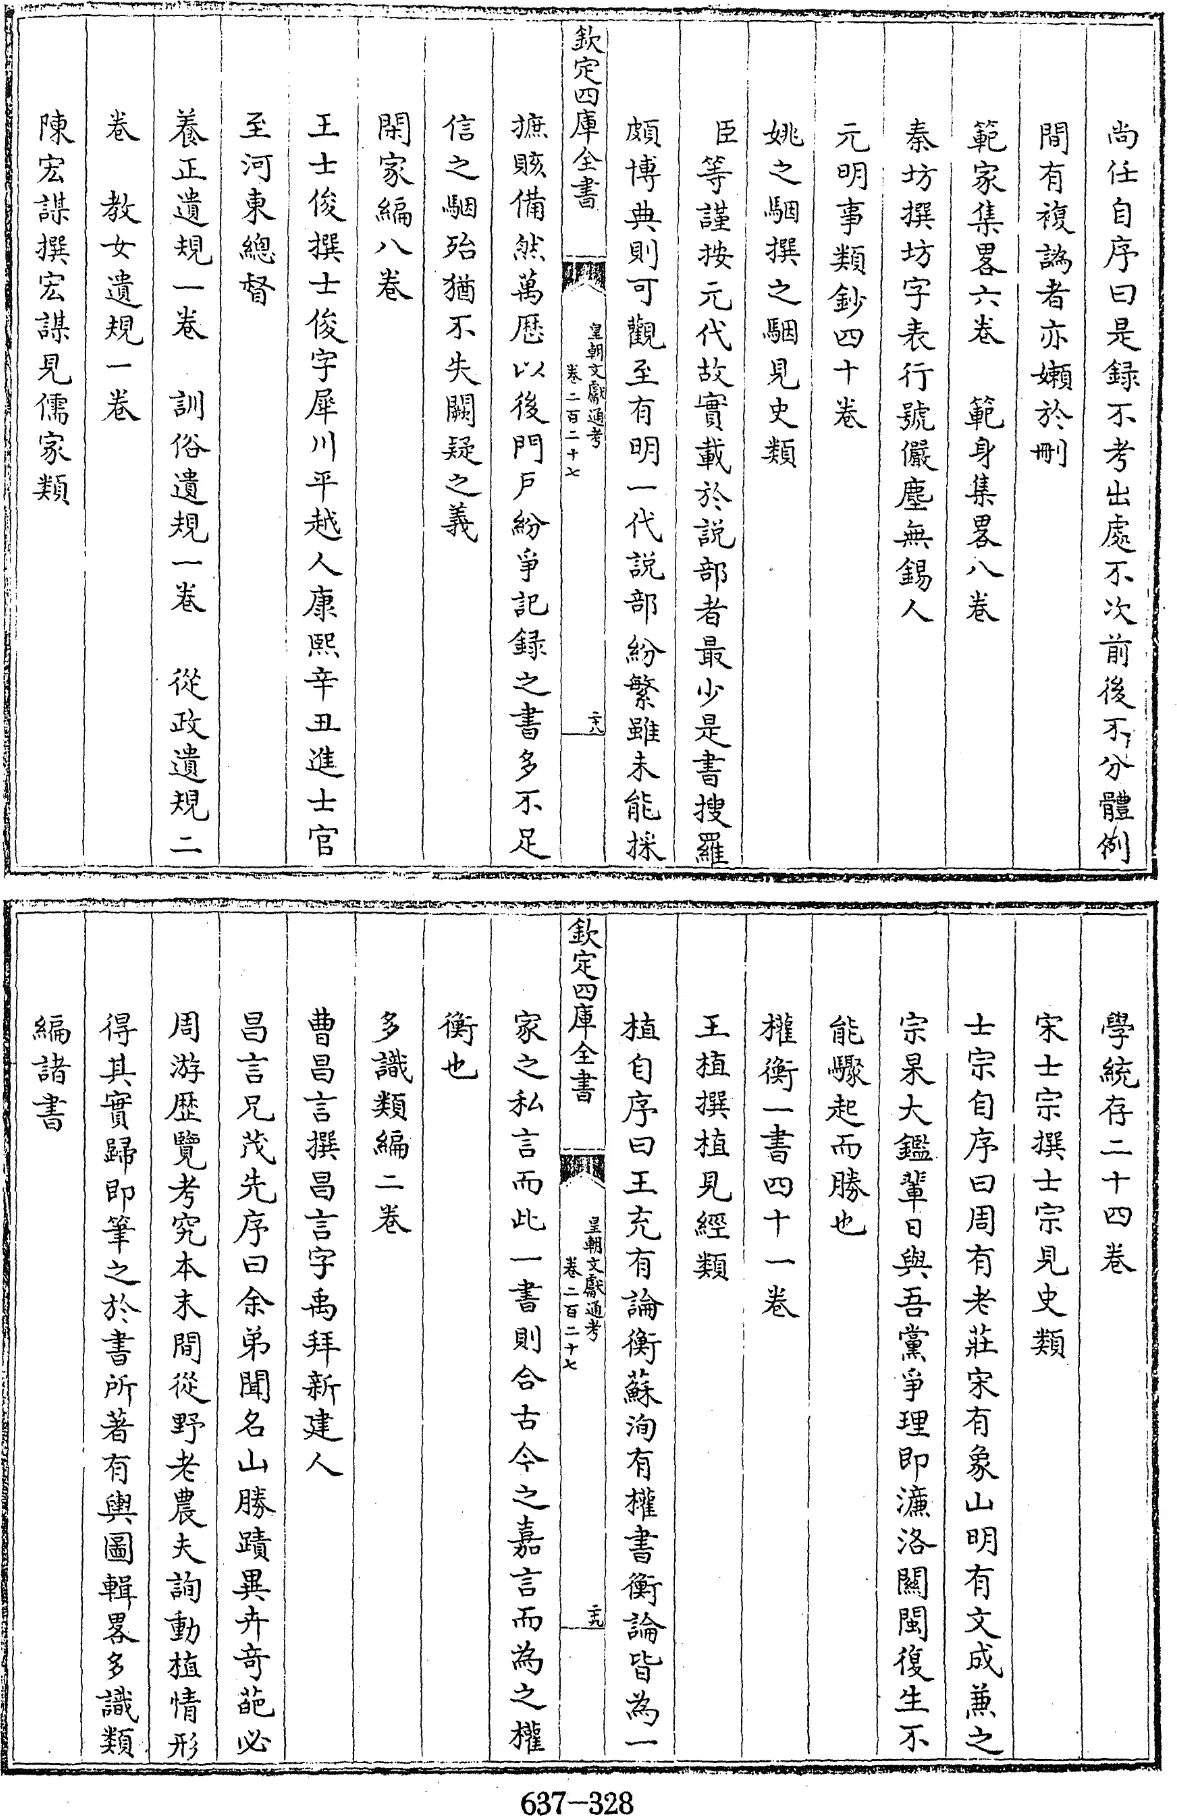 尚任自序曰是録不考出處不次前後不分體例
間有複譌者亦嬾於刪
範家集畧六卷　範身集畧八卷
秦坊撰坊字表行號儼塵無錫人
元明事類鈔四十卷
姚之駰撰之駰見史類
臣等謹按元代故實載於説部者最少是書搜羅
頗博典則可觀至有明一代説部紛繁雖未能採
欽定四庫全書
皇朝文獻通考
卷二百二十七
二十八
摭賅備然萬歴以後門戶紛爭記録之書多不足
信之駰殆猶不失闕疑之義
閑家編八卷
王士俊撰士俊字犀川平越人康熙辛丑進士官
至河東總督
養正遺規一卷　訓俗遺規一卷　從政遺規二
卷　教女遺規一卷
陳宏謀撰宏謀見儒家類
學統存二十四卷
宋士宗撰士宗見史類
士宗自序曰周有老莊宋有象山明有文成兼之
宗杲大鑑輩日與吾黨爭理即濂洛關閩復生不
能驟起而勝也
權衡一書四十一卷
王植撰植見經類
植自序曰王充有論衡蘇洵有權書衡論皆為一
欽定四庫全書
皇朝文獻通考
卷二百二十七
二十九
家之私言而此一書則合古今之嘉言而為之權
衡也
多識類編二卷
曹昌言撰昌言字禹拜新建人
昌言兄茂先序曰余弟聞名山勝蹟異卉奇葩必
周游歴覽考究本末間從野老農夫詢動植情形
得其實歸即筆之於書所著有輿圖輯畧多識類
編諸書
637-328